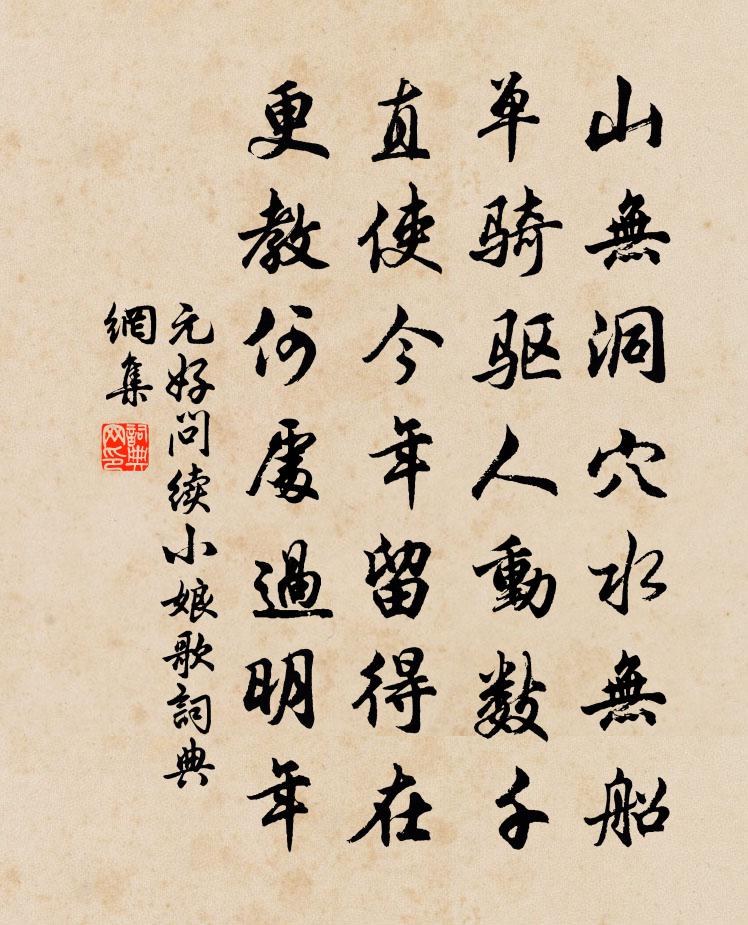 山無洞穴水無船
单骑驱人動数千
直使今年留得在
更教何處過明年
元好问续小娘歌詞典
網集
詞典
网印